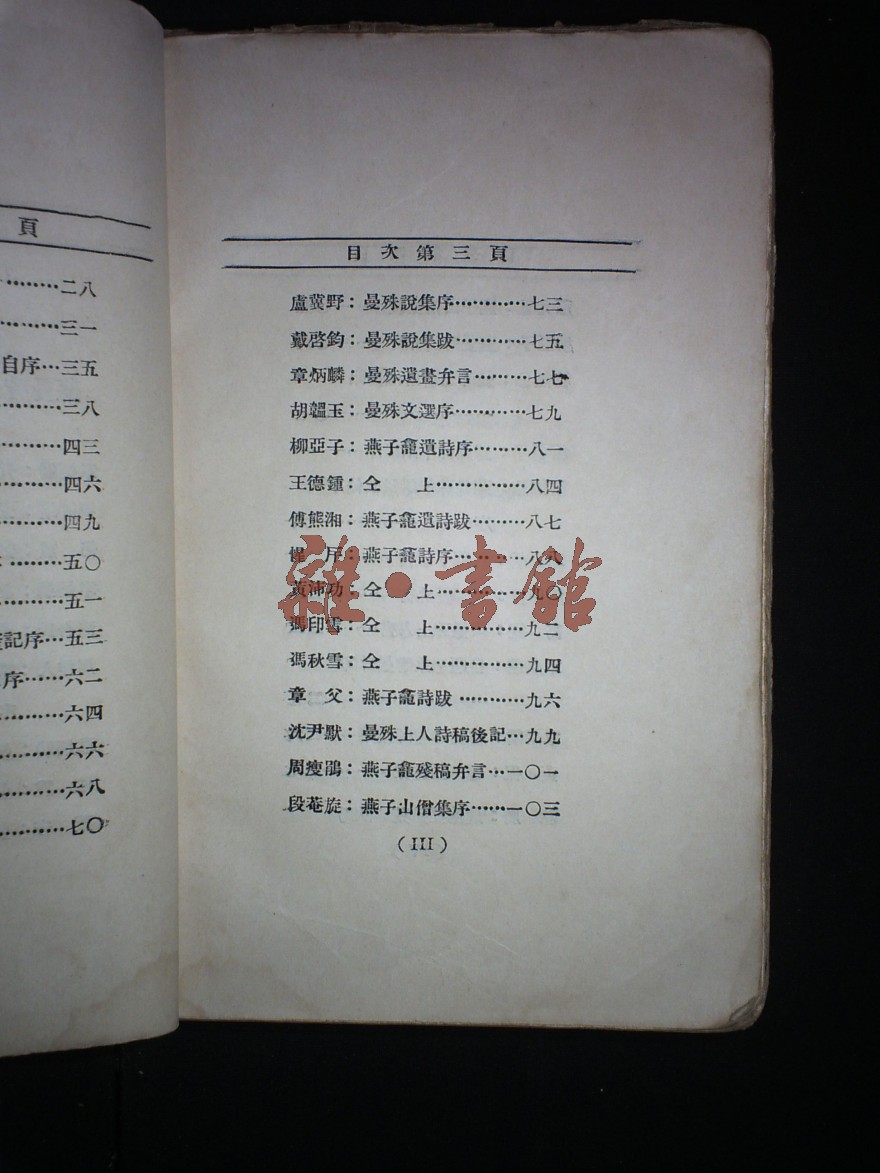 頁
二八
三一
自序…三五
三八
四三
四六
四九
五〇
五一
記序…五三
序……六二
六四
六六
六八
七〇
目次第三頁
盧冀野：曼殊說集序…………七三
戴啓鈞：曼殊說集跋…………七五
章炳麟：曼殊遺畫弁言………七七
胡韞玉：曼殊文選序…………七九
柳亞子：燕子龕遺詩序………八一
王德鍾：仝　上……………八四
傅熊湘：燕子龕遺詩跋………八七
燕子龕詩序…………八八
黃沛功：仝　上……………九〇
馮印雪：仝　上……………九二
馮秋雪：仝　上……………九四
章　父：燕子龕詩跋…………九六
沈尹默：曼殊上人詩稿後記…九九
周瘦鵑：燕子龕殘稿弁言…一〇一
段菴旋：燕子山僧集序……一〇三
(III)
雜·書館